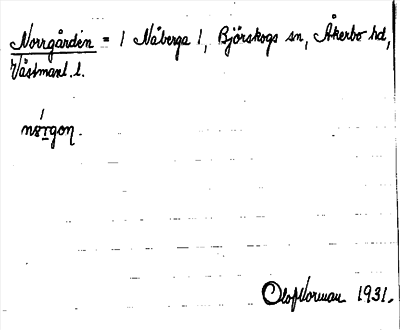 Norrgården = 1 Nåberga 1, Björskogs sn, Åkerbo hd,
Västmanl. l.
nørgon.
Olof Norman 1931.